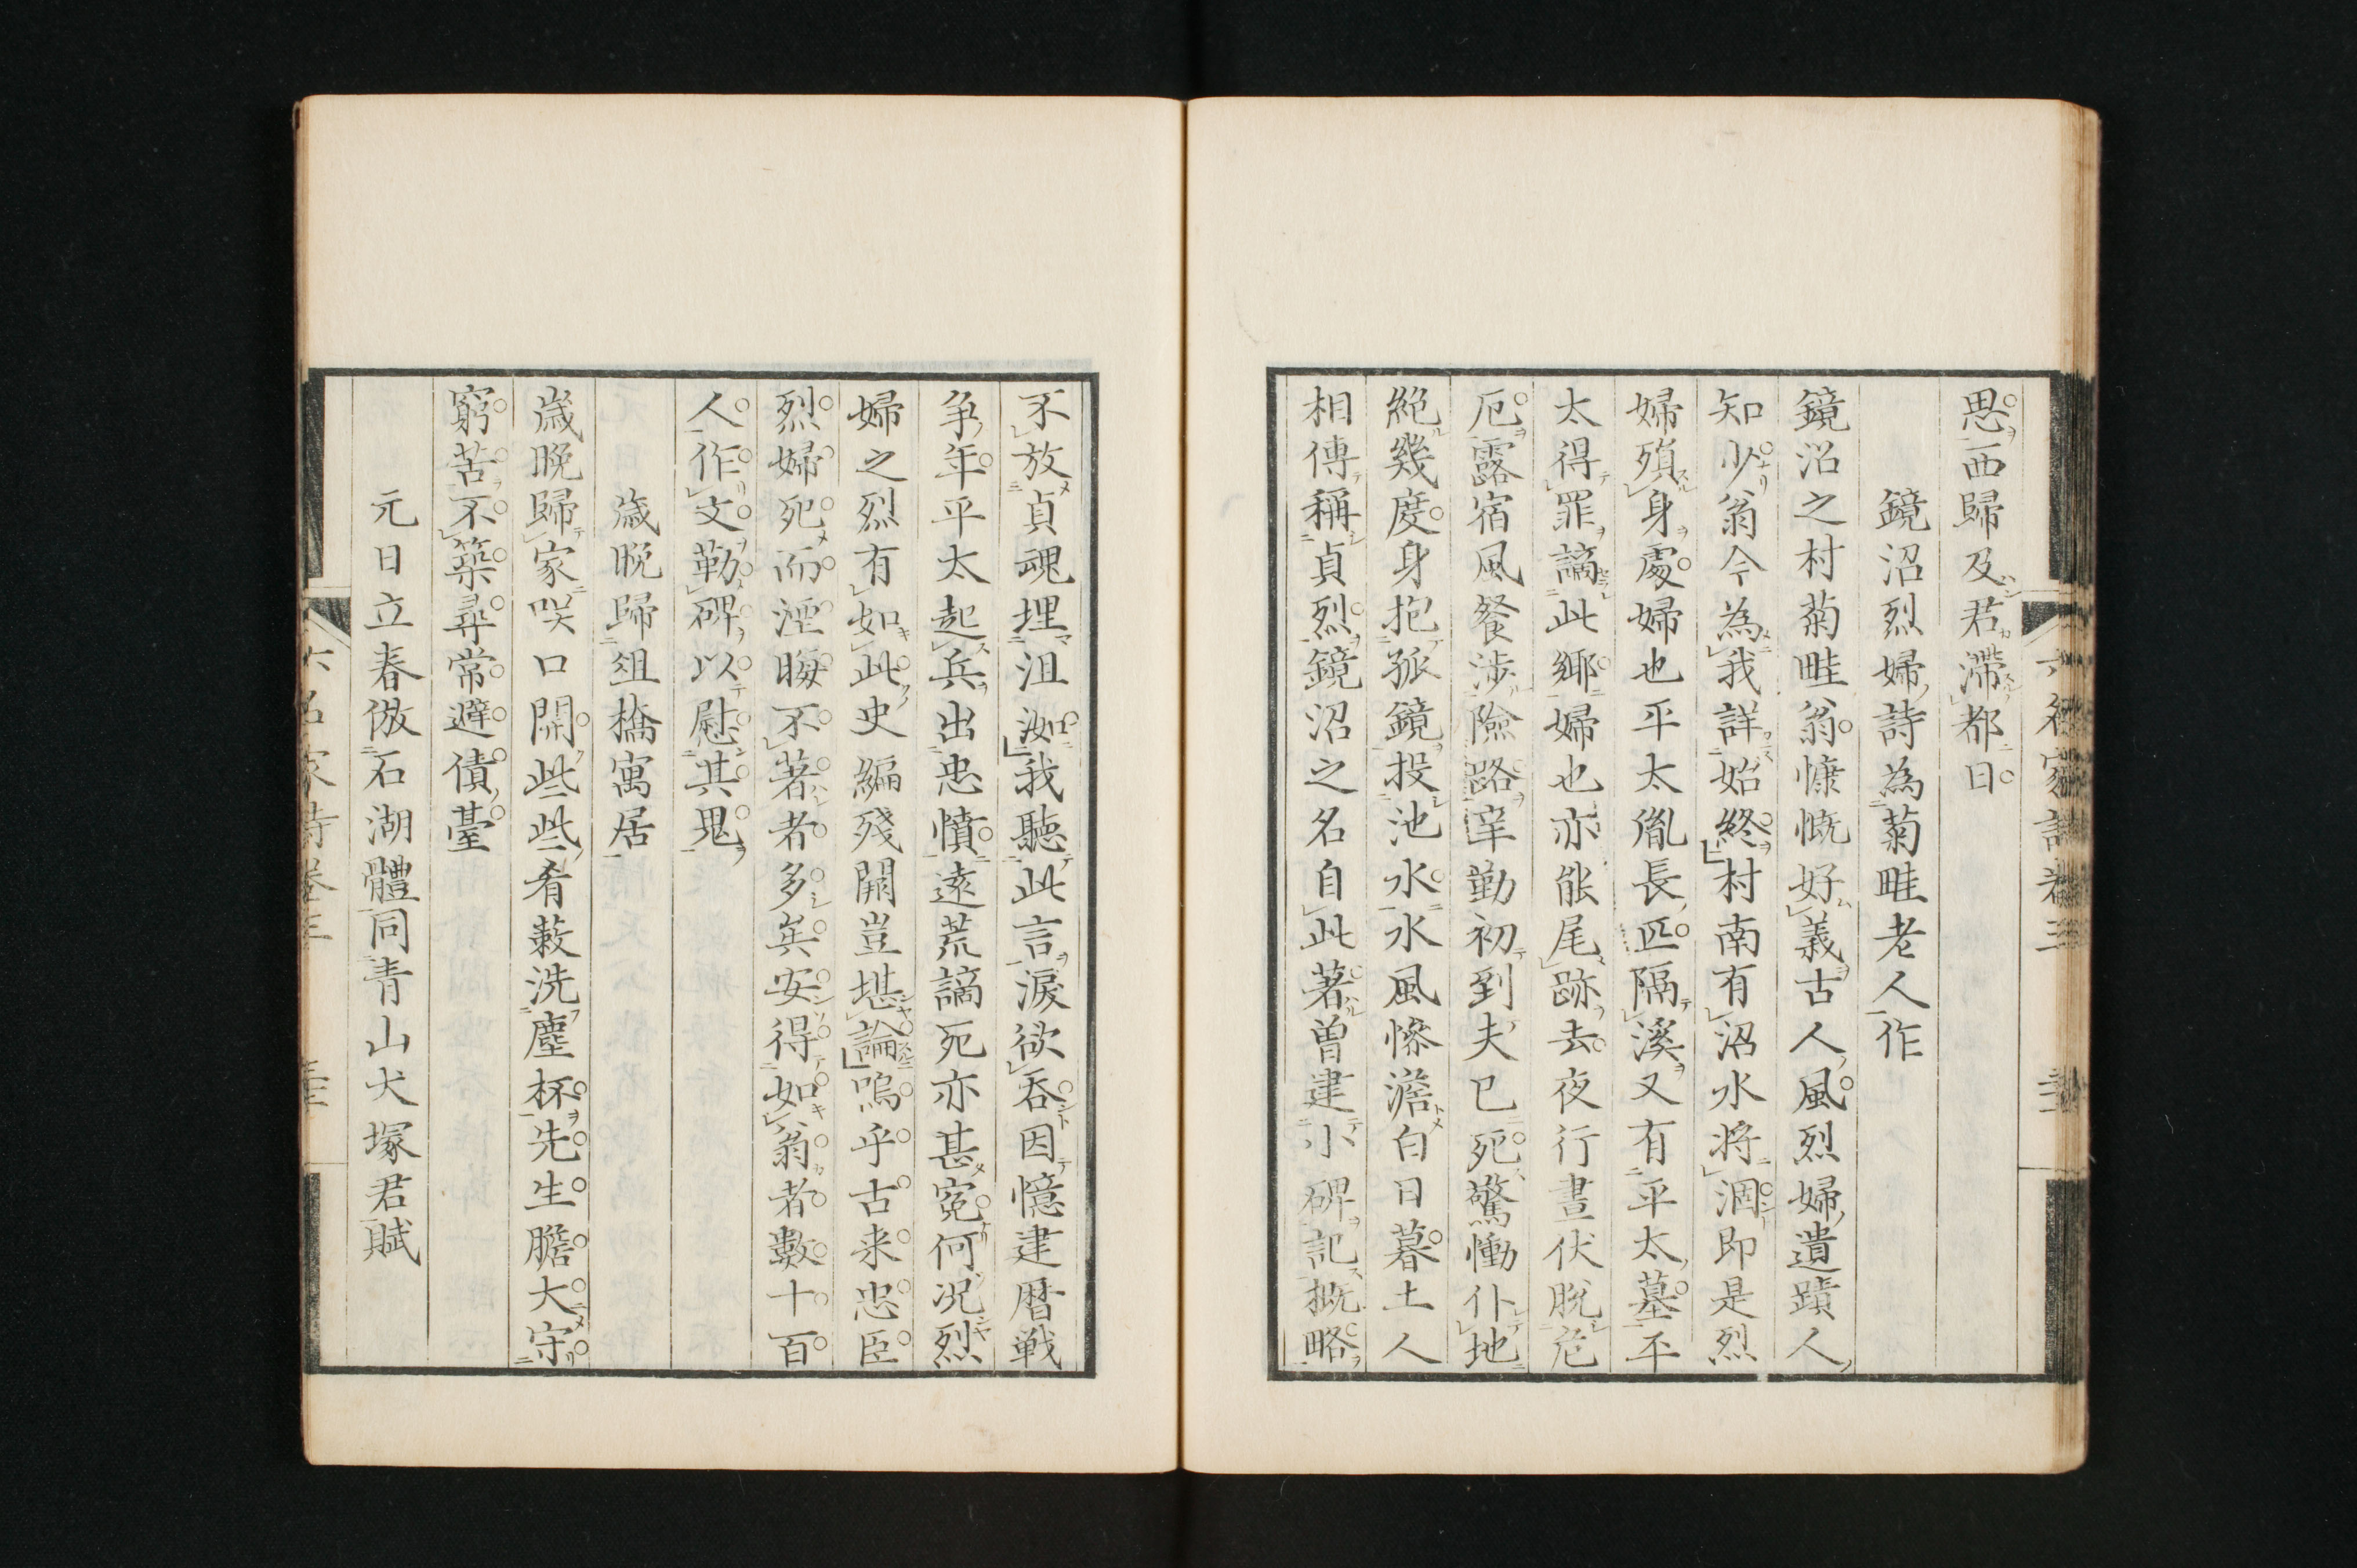 思西歸及君滯都日
鏡沼烈婦詩為菊畦老人作
鏡沼之村菊畦翁慷慨好義古人風烈婦遺蹟人
知少翁今為我詳始終村南有沼水將涸即是烈
婦殞身處婦也平太胤長匹隔溪又有平太墓平
太得罪謫此鄉婦也亦能尾跡去夜行晝伏脫危
厄露宿風餐渉險路辛勤初到夫已死驚慟仆地
絕幾度身抱孤鏡投池水水風慘澹白日暮土人
相傳稱貞烈鏡沼之名自此著曽建小碑記概略
不放貞魂埋沮洳我聽此言淚欲吞因憶建曆戦
爭年平太起兵出忠憤遠荒謫死亦甚冤何況烈
婦之烈有如此史編殘闕豈堪論嗚乎古来忠臣
烈婦死而湮晦不著者多矣安得如翁者數十百
人作文勒碑以慰其鬼
歲晩歸俎橋寓居
歲晩歸家咲口開些些肴蔌洗塵杯先生膽大守
窮苦不築尋常避債臺
元日立春倣石湖體同青山犬塚君賦